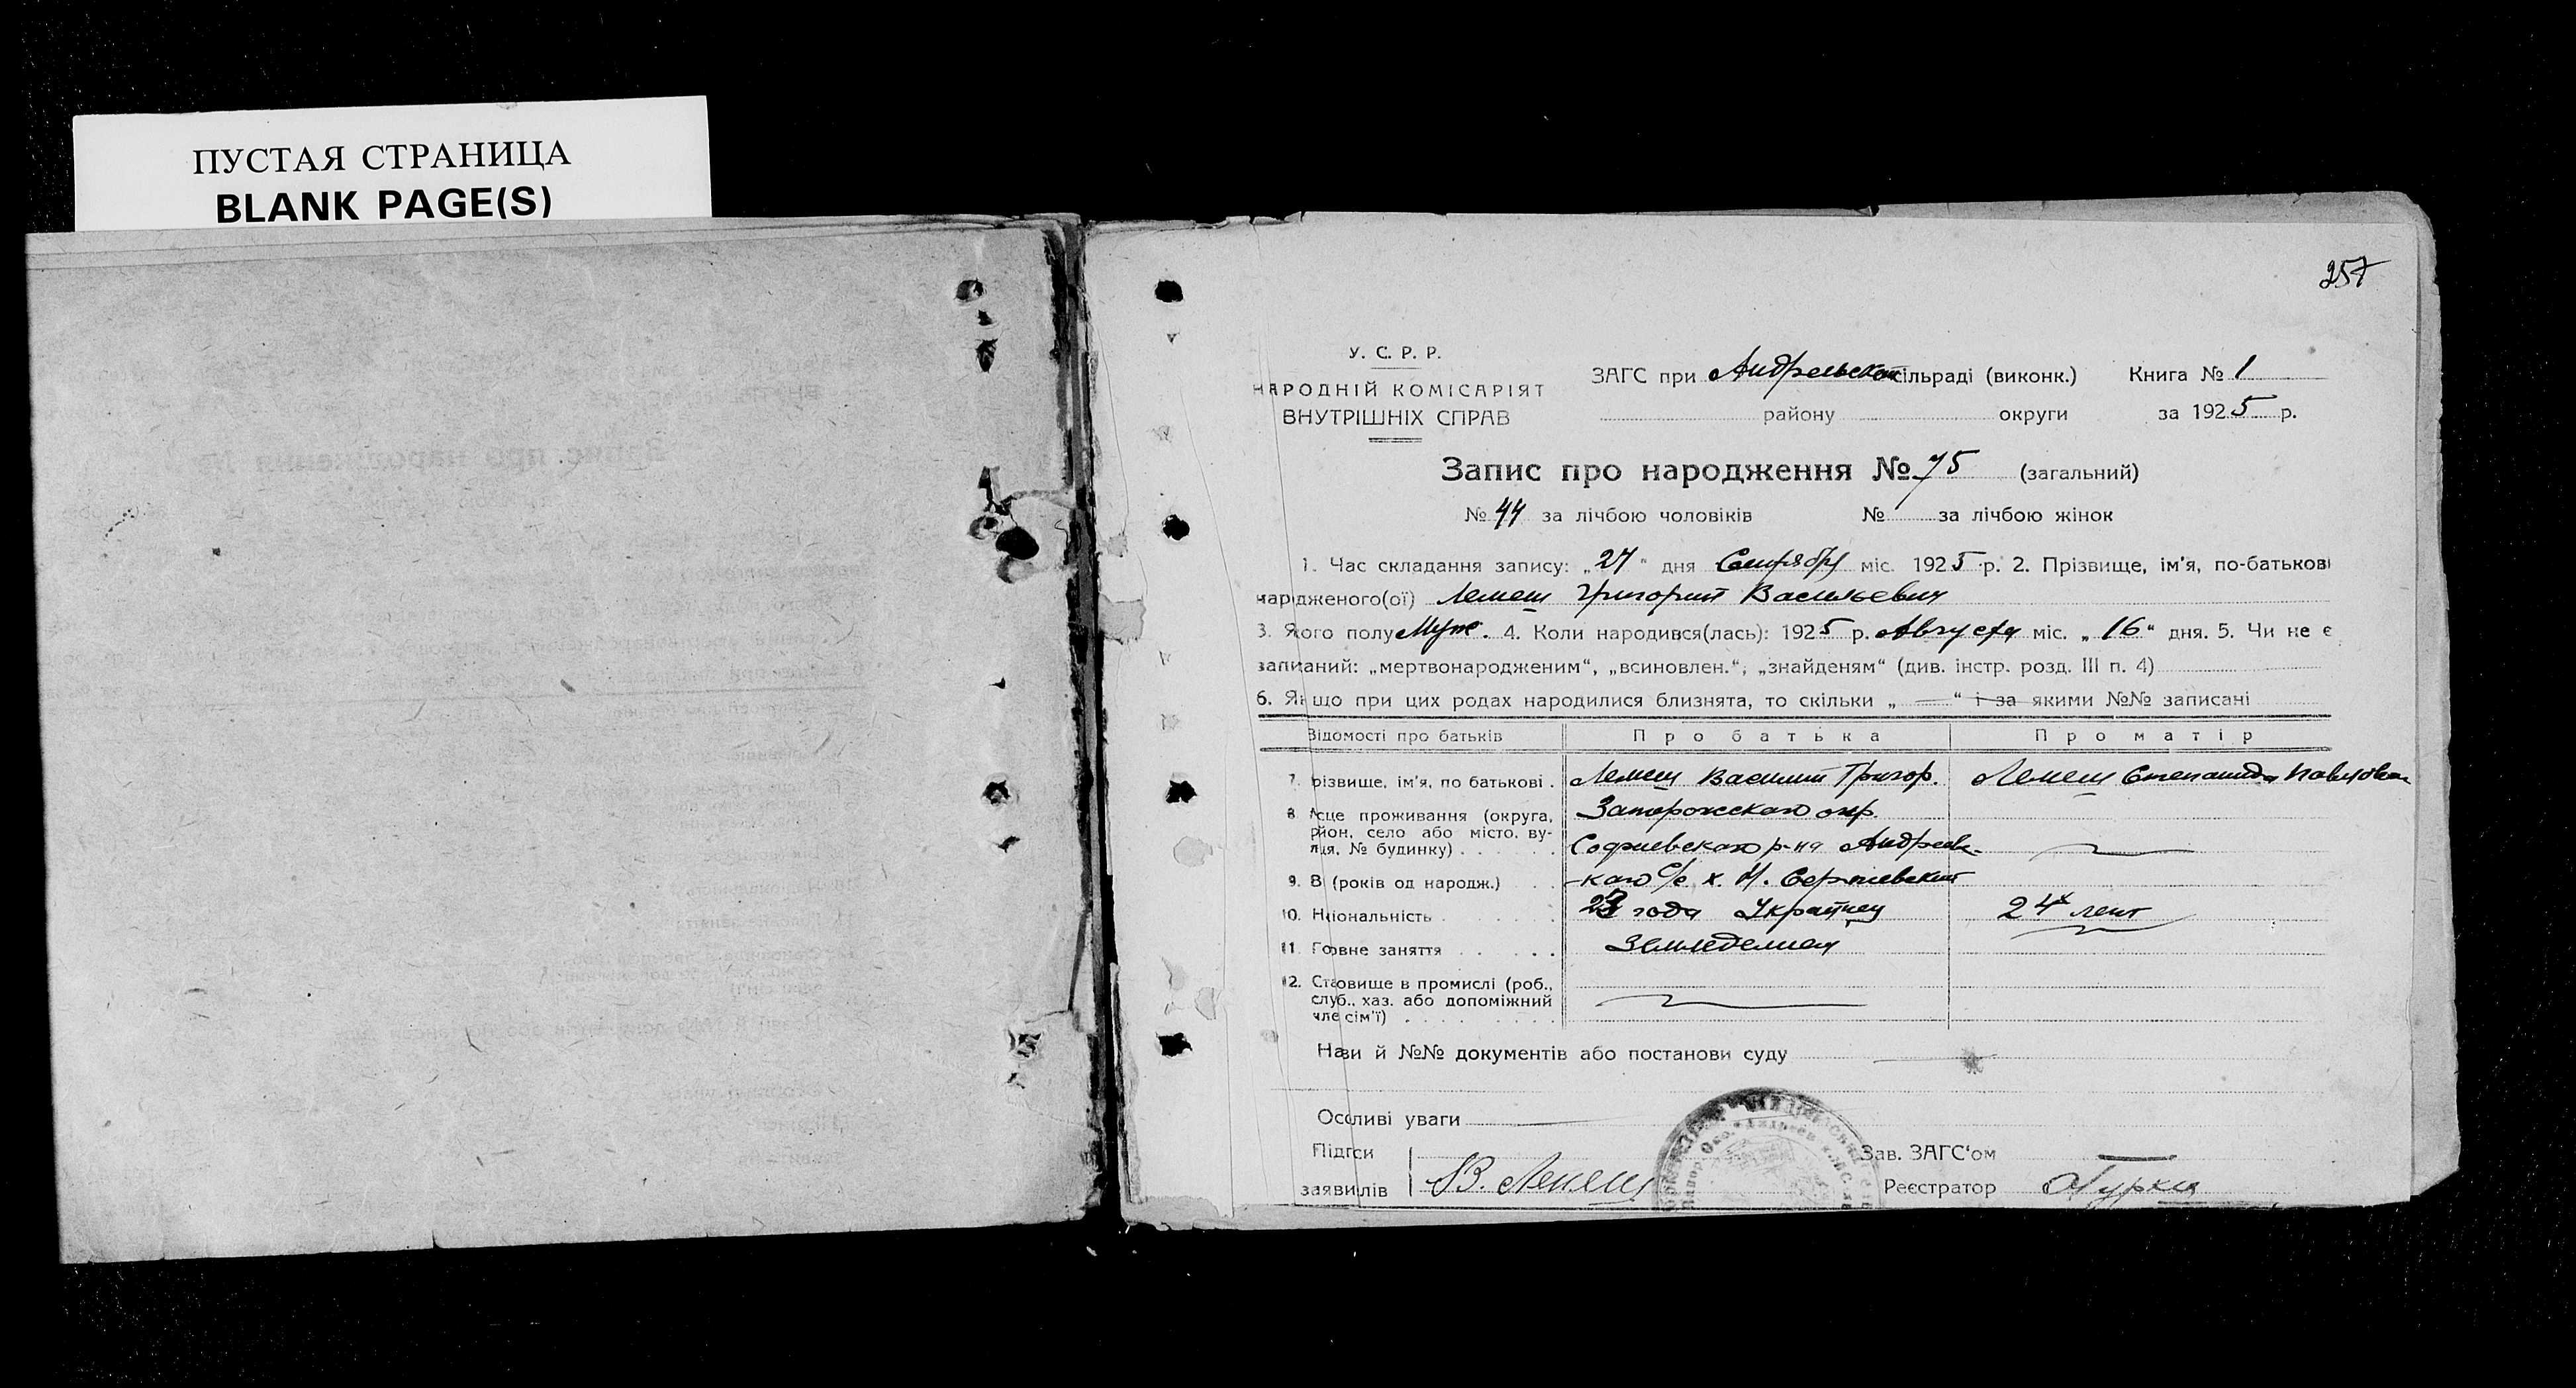 ПУСТАЯ СТРАНИЦА
BLANK PAGE(S)
257
У. С. Р. Р.
НАРОДНІЙ КОМІСАРІЯТ
ВНУТРІШНІХ СПРАВ
ЗАГС при Андреевской сільраді (виконк.) Книга № 1
району округи за 1925 р.
Запис про народження № 75 (загальний)
№ 44 за лічбою чоловіків № за лічбою жінок
1. Час складання запису: „27" дня Сентября міс. 1925 р. 2. Прізвище, ім'я, по-батькові
народженого(ої) Лемеш Григорий Васильевич
3. Якого полу Муж. 4. Коли народився(лась): 1925 р. Августа міс. „16" дня. 5. Чи не є
записаний: „мертвонародженим", „всиновлен.", „знайденям" (див. інстр. розд. III п. 4)
6. Якщо при цих родах народилися близнята, то скільки „ — " і за якими №№ записані
Відомості про батьків Про батька Про матір
7. різвище, ім'я, по батькові . Лемеш Василий Григор. Лемеш Степанида Павловна
8 сце проживання (округа, Запорожского окр.
район, село або місто, ву-
лця, № будинку) . . . . Софиевского р-на Андреев-
9. В (років од народж.) . . -кого с/с х. Н. Сергиевский
10. Національність . . . . 23 года Украинец 24х лет
11. Говне заняття . . . . Земледелием
12. Становище в промислі (роб.,
служб., хаз. або допоміжний
чле сім'ї) . . . . . . .
Нази й №№ документів або постанови суду
Особливі уваги
Підпси Зав. ЗАГС'ом
заявилів В. Лемеш Реєстратор